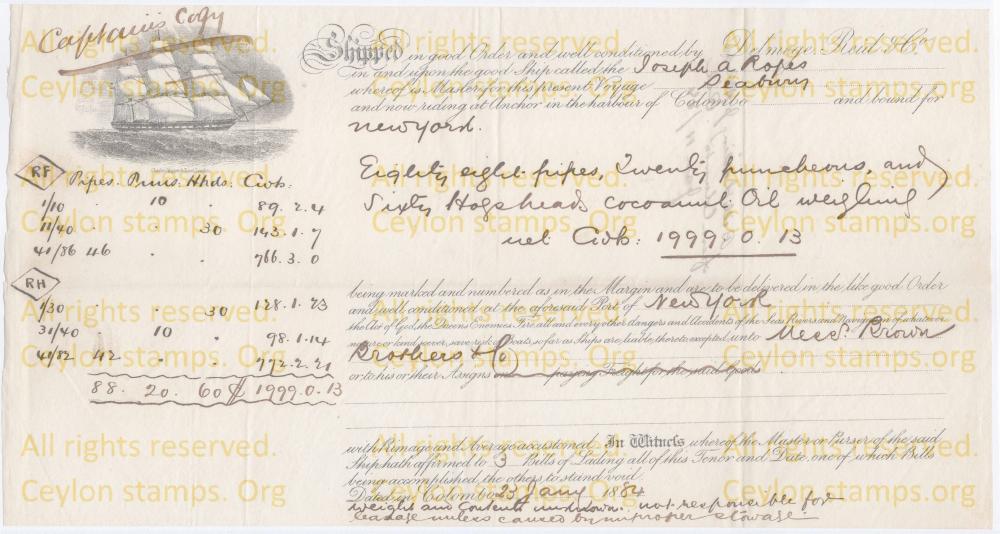 Captain's Copy
Shipped in good Order and well conditioned by Delmege Reid & Co
in and upon the good Ship called the Joseph a Ropes
whereof is Master for this present Voyage Seaburn
and now riding at Anchor in the harbour of Colombo and bound for
New York.
Eighty eight pipes, Twenty puncheons, and
Sixty Hogsheads cocoanut Oil weighing
net Cwts: 1999.0.13
RF
Pipes. Puns. Hhds. Cwts:
1/10 . 10 . 89.2.4
11/40 . . 30 143.1.7
41/86 46 . . 766.3.0
RH
1/30 . . 30 128.1.23
31/40 . 10 . 98.1.14
41/82 42 . . 772.2.21
88. 20. 60 1999.0.13
being marked and numbered as in the Margin and are to be delivered in the like good Order
and well conditioned at the aforesaid Port of New York
the Act of God, the Queens Enemies, Fire all and every other dangers and Accidents of the Seas Rivers and Navigation of whatever
nature or kind soever, save risk of Boats, so far as Ships are liable, thereto excepted, unto Messrs. Brown
Brothers & Co
or to his or their Assigns paying Freight for the said Goods
with Primage and Average accustomed. In Witness whereof the Master or Purser of the said
Ship hath affirmed to 3 Bills of Lading all of this Tenor and Date, one of which Bills
being accomplished, the others to stand void.
Dated in Colombo 23 Jany 1864
weight and Contents unknown. not responsible for
leakage unless caused by improper stowage.
All rights reserved.
Ceylon stamps. Org
All rights reserved.
Ceylon stamps. Org
All rights reserved.
Ceylon stamps. Org
All rights reserved.
Ceylon stamps. Org